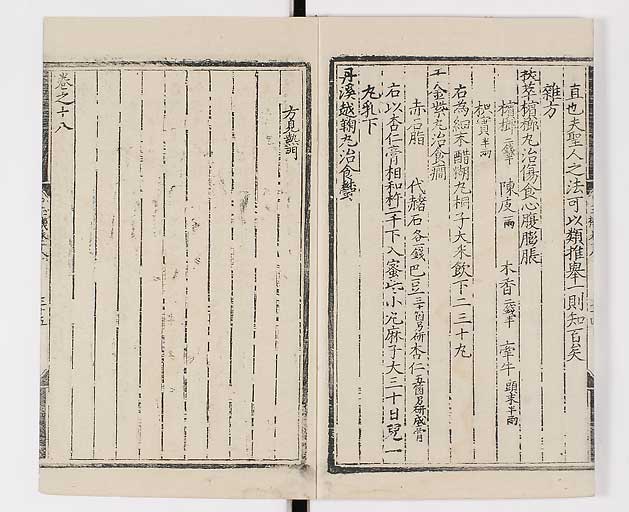 直也夫聖人之法可以類推舉一則知百矣
雜方
抜萃檳榔丸治傷食心腹膨脹
檳榔二錢半 陳皮一兩 木香二錢半 牽牛頭末半兩
枳實半兩
右為細末醋糊丸桐子大米飲下二三十丸
金紫丸治食癇
赤石脂 代赭石各一錢 巴豆三十箇另研 杏仁五十箇另研成膏
右以杏仁膏相和杵二千下入蜜少小丸麻子大三十日兒一
丸乳下
丹溪越鞠丸治食鬱
方見熱門
卷之十八
三十五